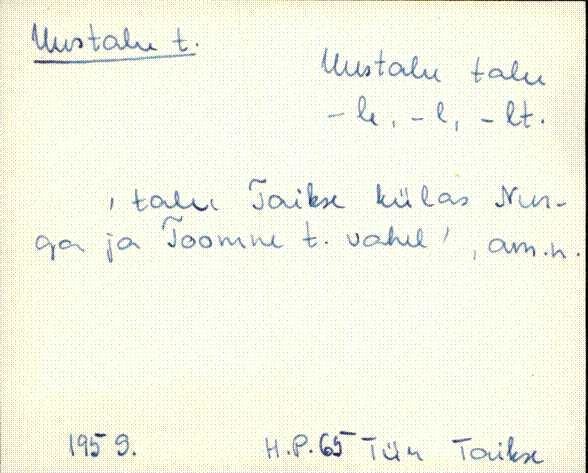 Uustalu t.
Uustalu talu
-le, -l, -lt.
' talu Taikse külas Nur-
ga ja Toomne t. vahel', am.n.
1959. H.P. 65 Tür Taikse